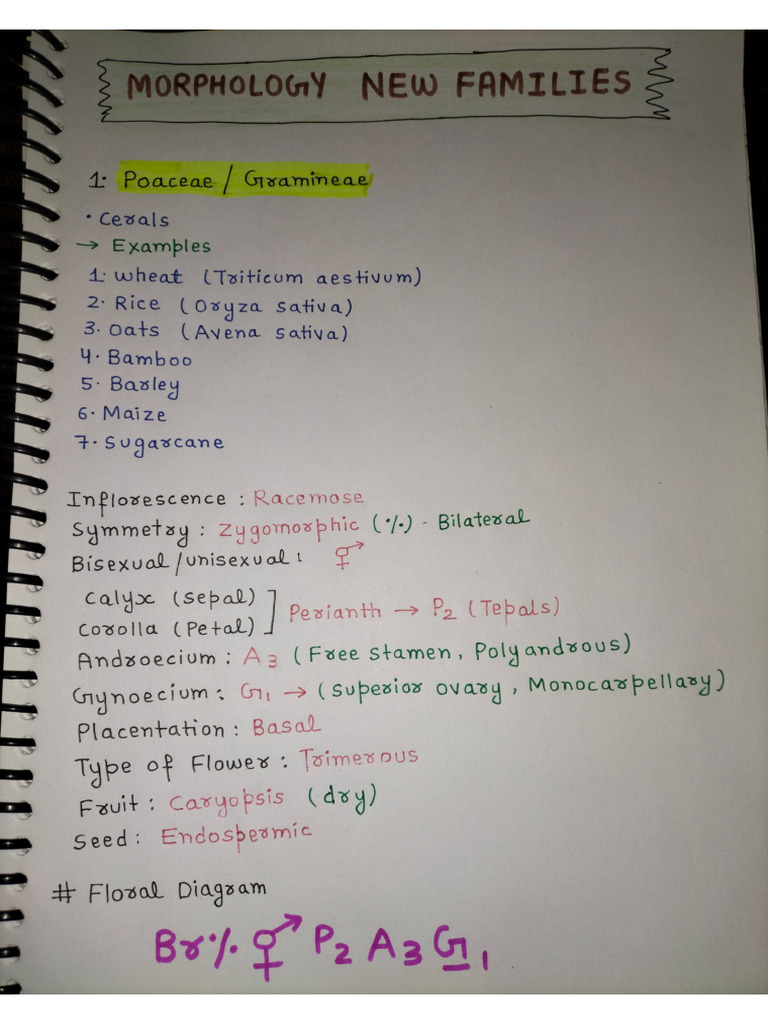 MORPHOLOGY NEW FAMILIES
1. Poaceae / Gramineae
• Cerals
→ Examples
1. Wheat (Triticum aestivum)
2. Rice (Oryza sativa)
3. Oats (Avena sativa)
4. Bamboo
5. Barley
6. Maize
7. Sugarcane
Inflorescence : Racemose
Symmetry : Zygomorphic (%) - Bilateral
Bisexual/unisexual : ⚥
Calyx (sepal)
Corolla (Petal) ] Perianth → P2 (Tepals)
Androecium : A3 (Free stamen, Polyandrous)
Gynoecium : G1 → (Superior ovary, Monocarpellary)
Placentation : Basal
Type of Flower : Trimerous
Fruit : Caryopsis (dry)
Seed : Endospermic
# Floral Diagram
Br % ⚥ P2 A3 G1